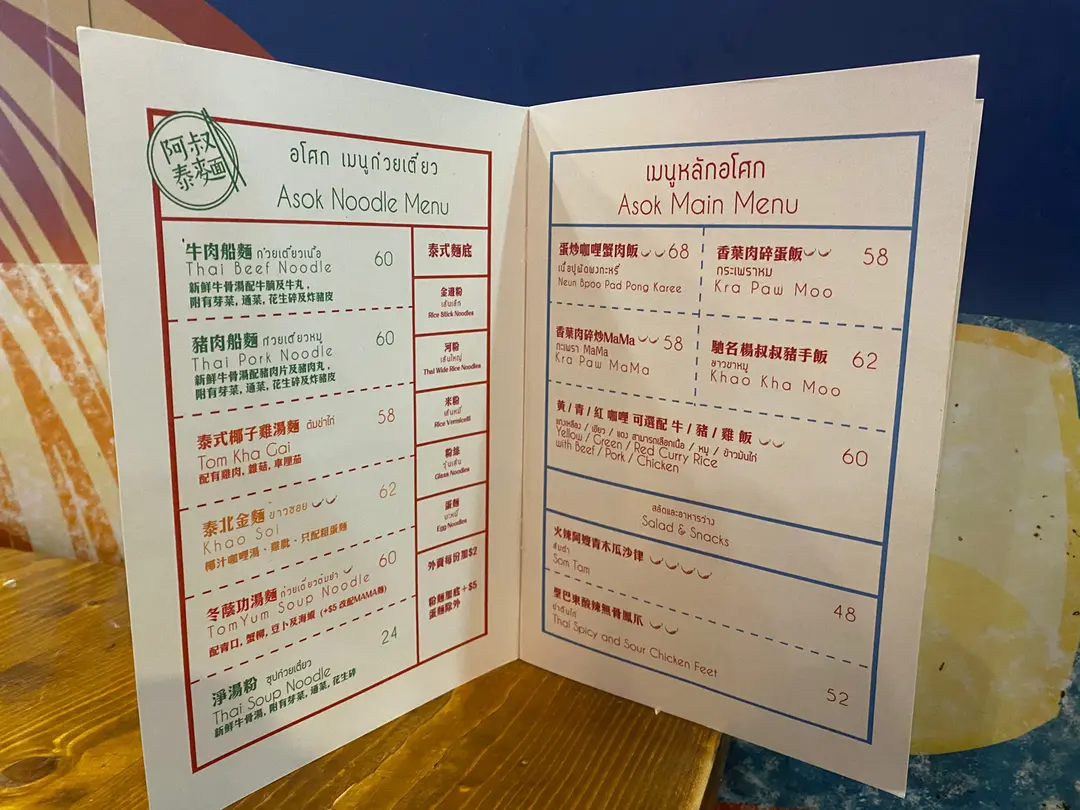 阿叔
泰麵
อโศก เมนูก๋วยเตี๋ยว
Asok Noodle Menu
牛肉船麵 ก๋วยเตี๋ยวเนื้อ 60
Thai Beef Noodle
新鮮牛骨湯配牛腩及牛丸,
附有芽菜, 通菜, 花生碎及炸豬皮
豬肉船麵 ก๋วยเตี๋ยวหมู 60
Thai Pork Noodle
新鮮牛骨湯配豬肉片及豬肉丸,
附有芽菜, 通菜, 花生碎及炸豬皮
泰式椰子雞湯麵 ต้มข่าไก่ 58
Tom Kha Gai
配有雞肉, 雜菇, 車厘茄
泰北金麵 ข้าวซอย 62
Khao Soi
椰汁咖哩湯、雞髀、只配粗蛋麵
冬蔭功湯麵 ก๋วยเตี๋ยวต้มยำ 60
TomYum Soup Noodle
配青口, 蟹柳, 豆卜及海蝦 (+$5 改配MAMA麵)
淨湯粉 ซุปก๋วยเตี๋ยว 24
Thai Soup Noodle
新鮮牛骨湯, 附有芽菜, 通菜, 花生碎
泰式麵底
金邊粉
เส้นเล็ก
Rice Stick Noodles
河粉
เส้นใหญ่
Thai Wide Rice Noodles
米粉
เส้นหมี่
Rice Vermicelli
粉絲
วุ้นเส้น
Glass Noodles
蛋麵
บะหมี่
Egg Noodles
外賣每份加$2
粉麵加底+$5
蛋麵除外
เมนูหลักอโศก
Asok Main Menu
蛋炒咖哩蟹肉飯 68
เนื้อปูผัดผงกะหรี่
Neun Bpoo Pad Pong Karee
香葉肉碎蛋飯 58
กระเพราหม
Kra Paw Moo
香葉肉碎炒MaMa 58
กะเพรา MaMa
Kra Paw MaMa
馳名楊叔叔豬手飯 62
ขาวขาหมู
Khao Kha Moo
黃 / 青 / 紅 咖哩 可選配 牛 / 豬 / 雞 飯
แกงเหลือง / เขียว / แดง สามารถเลือกเนื้อ / หมู / ข้าวมันไก่ 60
Yellow / Green / Red Curry Rice
with Beef / Pork / Chicken
สลัดและอาหารว่าง
Salad & Snacks
火辣阿嫂青木瓜沙律
ส้มตำ 48
Som Tam
聖巴東酸辣無骨鳳爪
ยำตีนไก่
Thai Spicy and Sour Chicken Feet 52